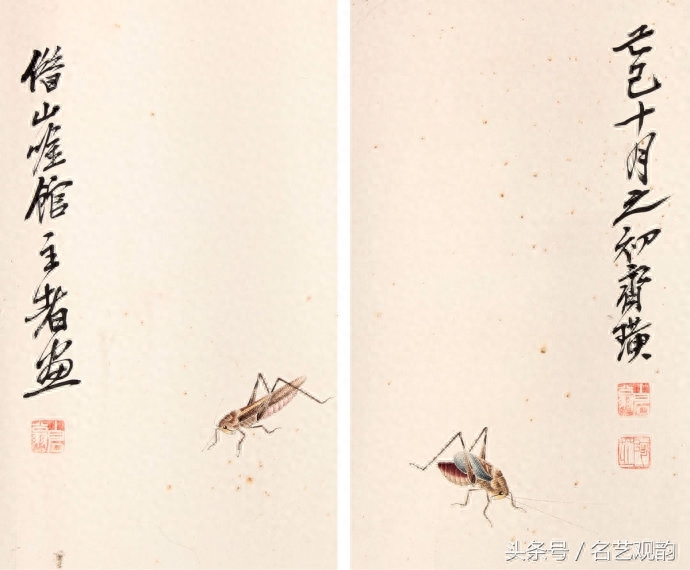 借山唫館主者画
巳十月之初齊璜
头条号 / 名艺观韵